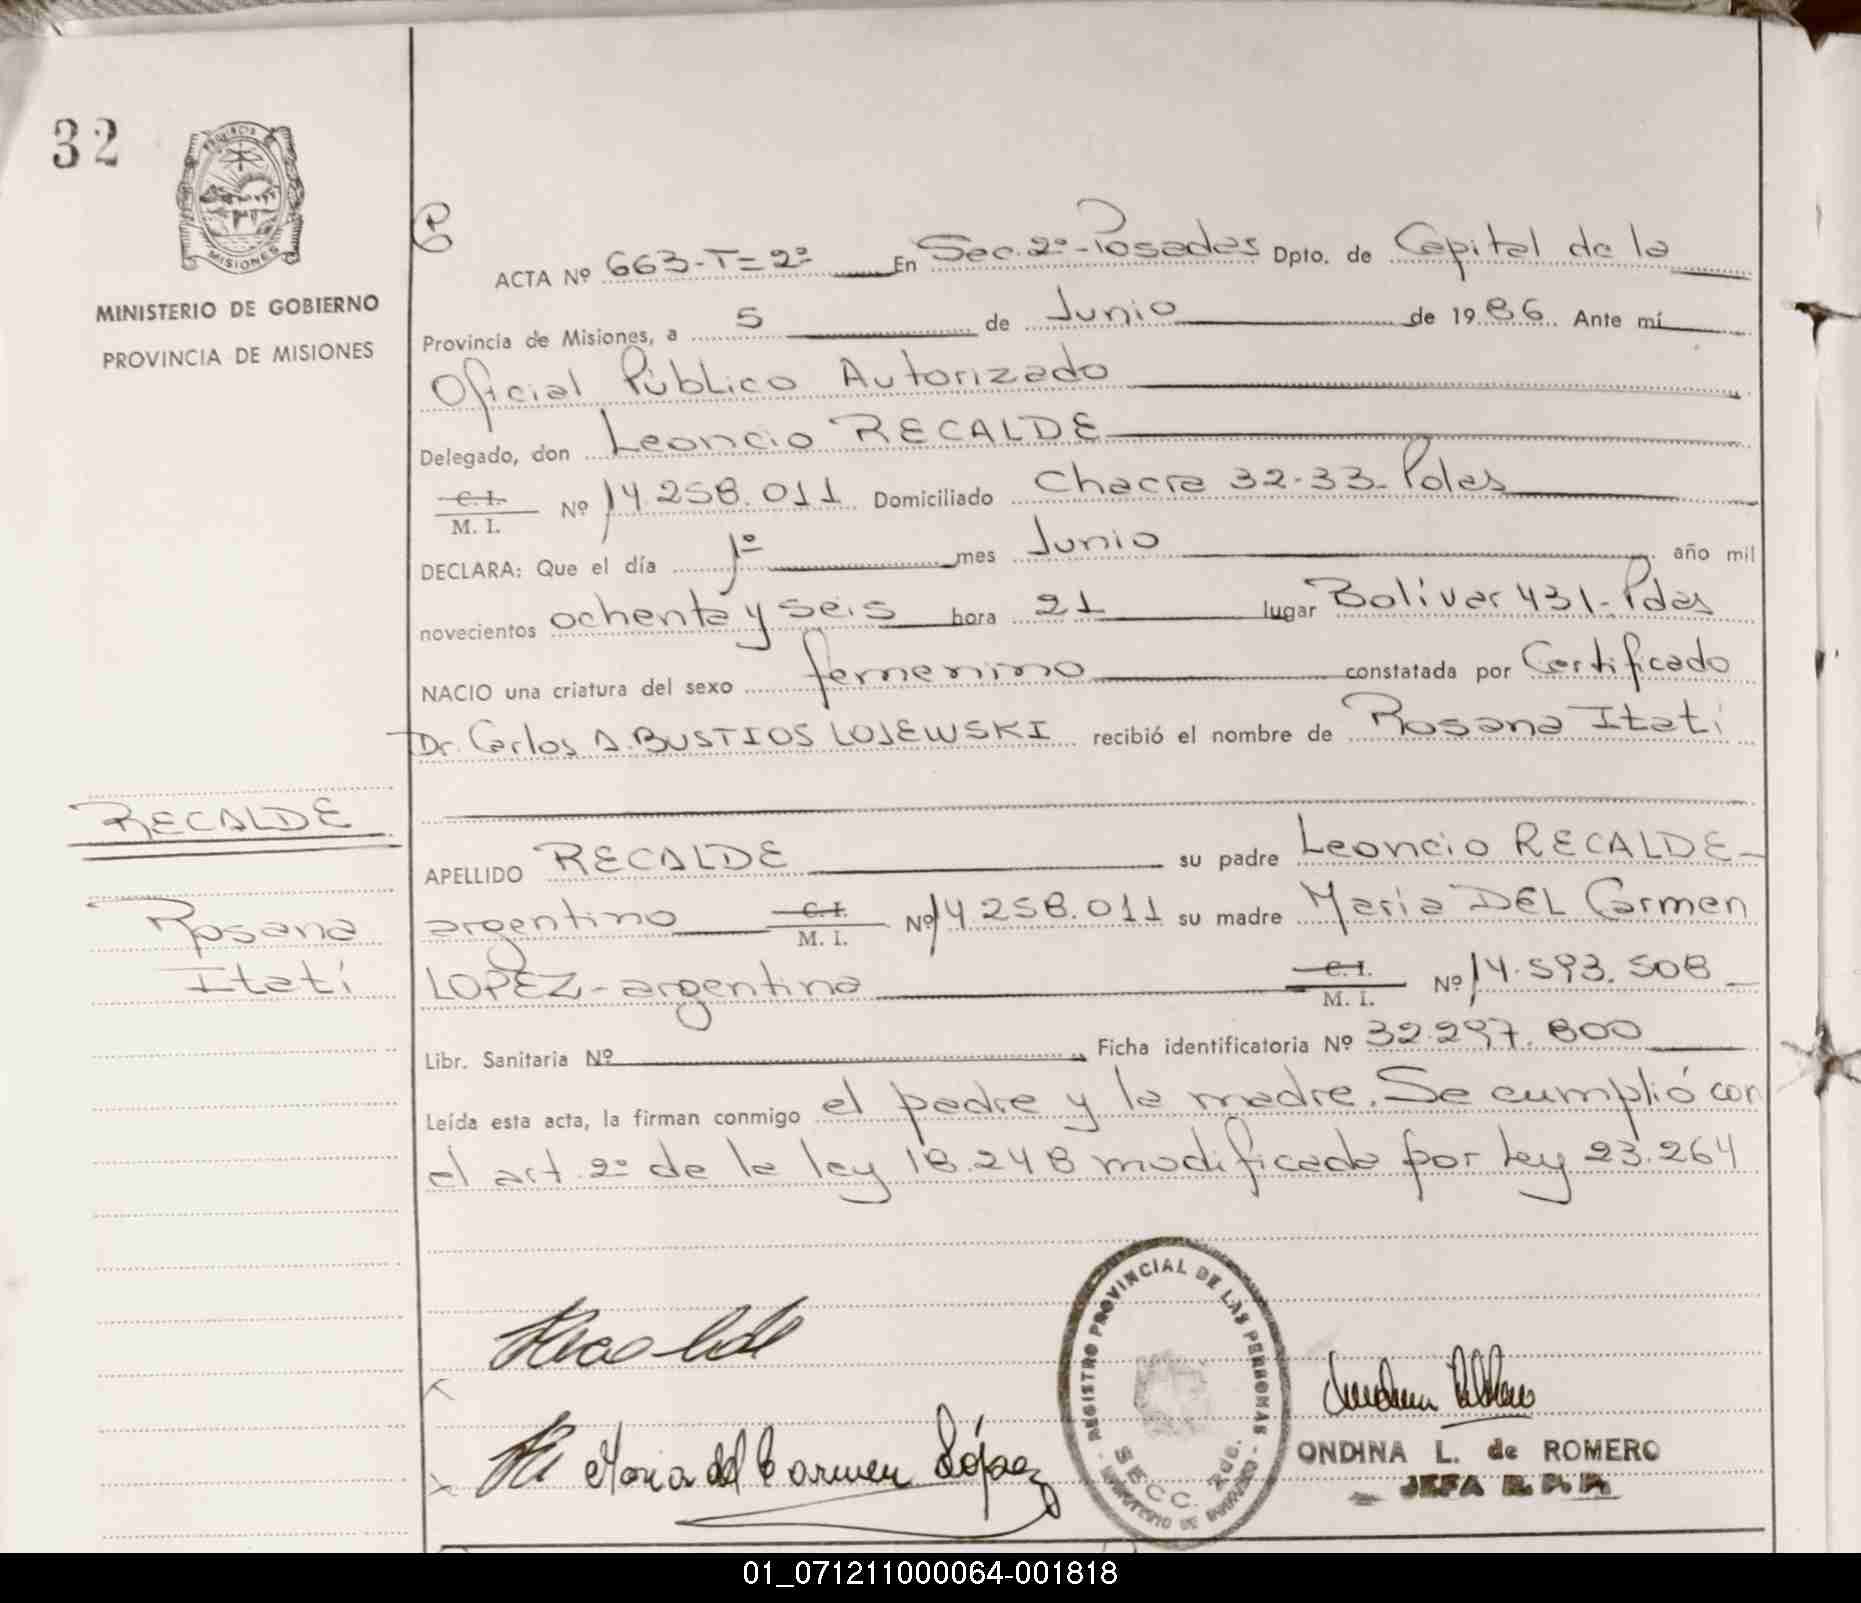 32
PROVINCIA
MISIONES
MINISTERIO DE GOBIERNO
PROVINCIA DE MISIONES
ACTA Nº 663-T=2º En Sec. 2º-Posadas Dpto. de Capital de la
Provincia de Misiones, a 5 de Junio de 1986. Ante mí
Oficial Público Autorizado
Delegado, don Leoncio RECALDE
C. I.
M. I. Nº 14.258.011 Domiciliado Chacra 32-33- Pdas
DECLARA: Que el día 1º mes Junio año mil
novecientos ochenta y seis hora 21 lugar Bolívar 431-Pdas
NACIO una criatura del sexo femenino constatada por Certificado
Dr. Carlos A. BUSTIOS LOJEWSKI recibió el nombre de Rosana Itatí
RECALDE
APELLIDO RECALDE su padre Leoncio RECALDE-
Rosana
Itatí
argentino C. I. M. I. Nº 14.258.011 su madre María DEL Carmen
LOPEZ-argentina C. I. M. I. Nº 14.593.508
Libr. Sanitaria Nº Ficha identificatoria Nº 32.297.800
Leída esta acta, la firman conmigo el padre y la madre. Se cumplió con
el art. 2º de la ley 18.248 modificada por ley 23.264
Recalde
Maria del Carmen López
REGISTRO PROVINCIAL DE LAS PERSONAS
SECC. 2da.
MINISTERIO DE GOBIERNO
ONDINA L. de ROMERO
JEFA R. P. P.
01_071211000064-001818